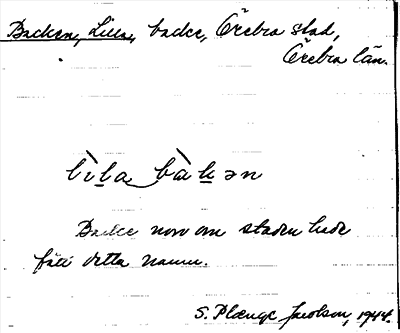 Backen, Lilla, backe, Örebro stad,
Örebro län.
lìla bàkən
Backe norr om staden hade
fått detta namn.
S. Plænge Jacobson, 1944.